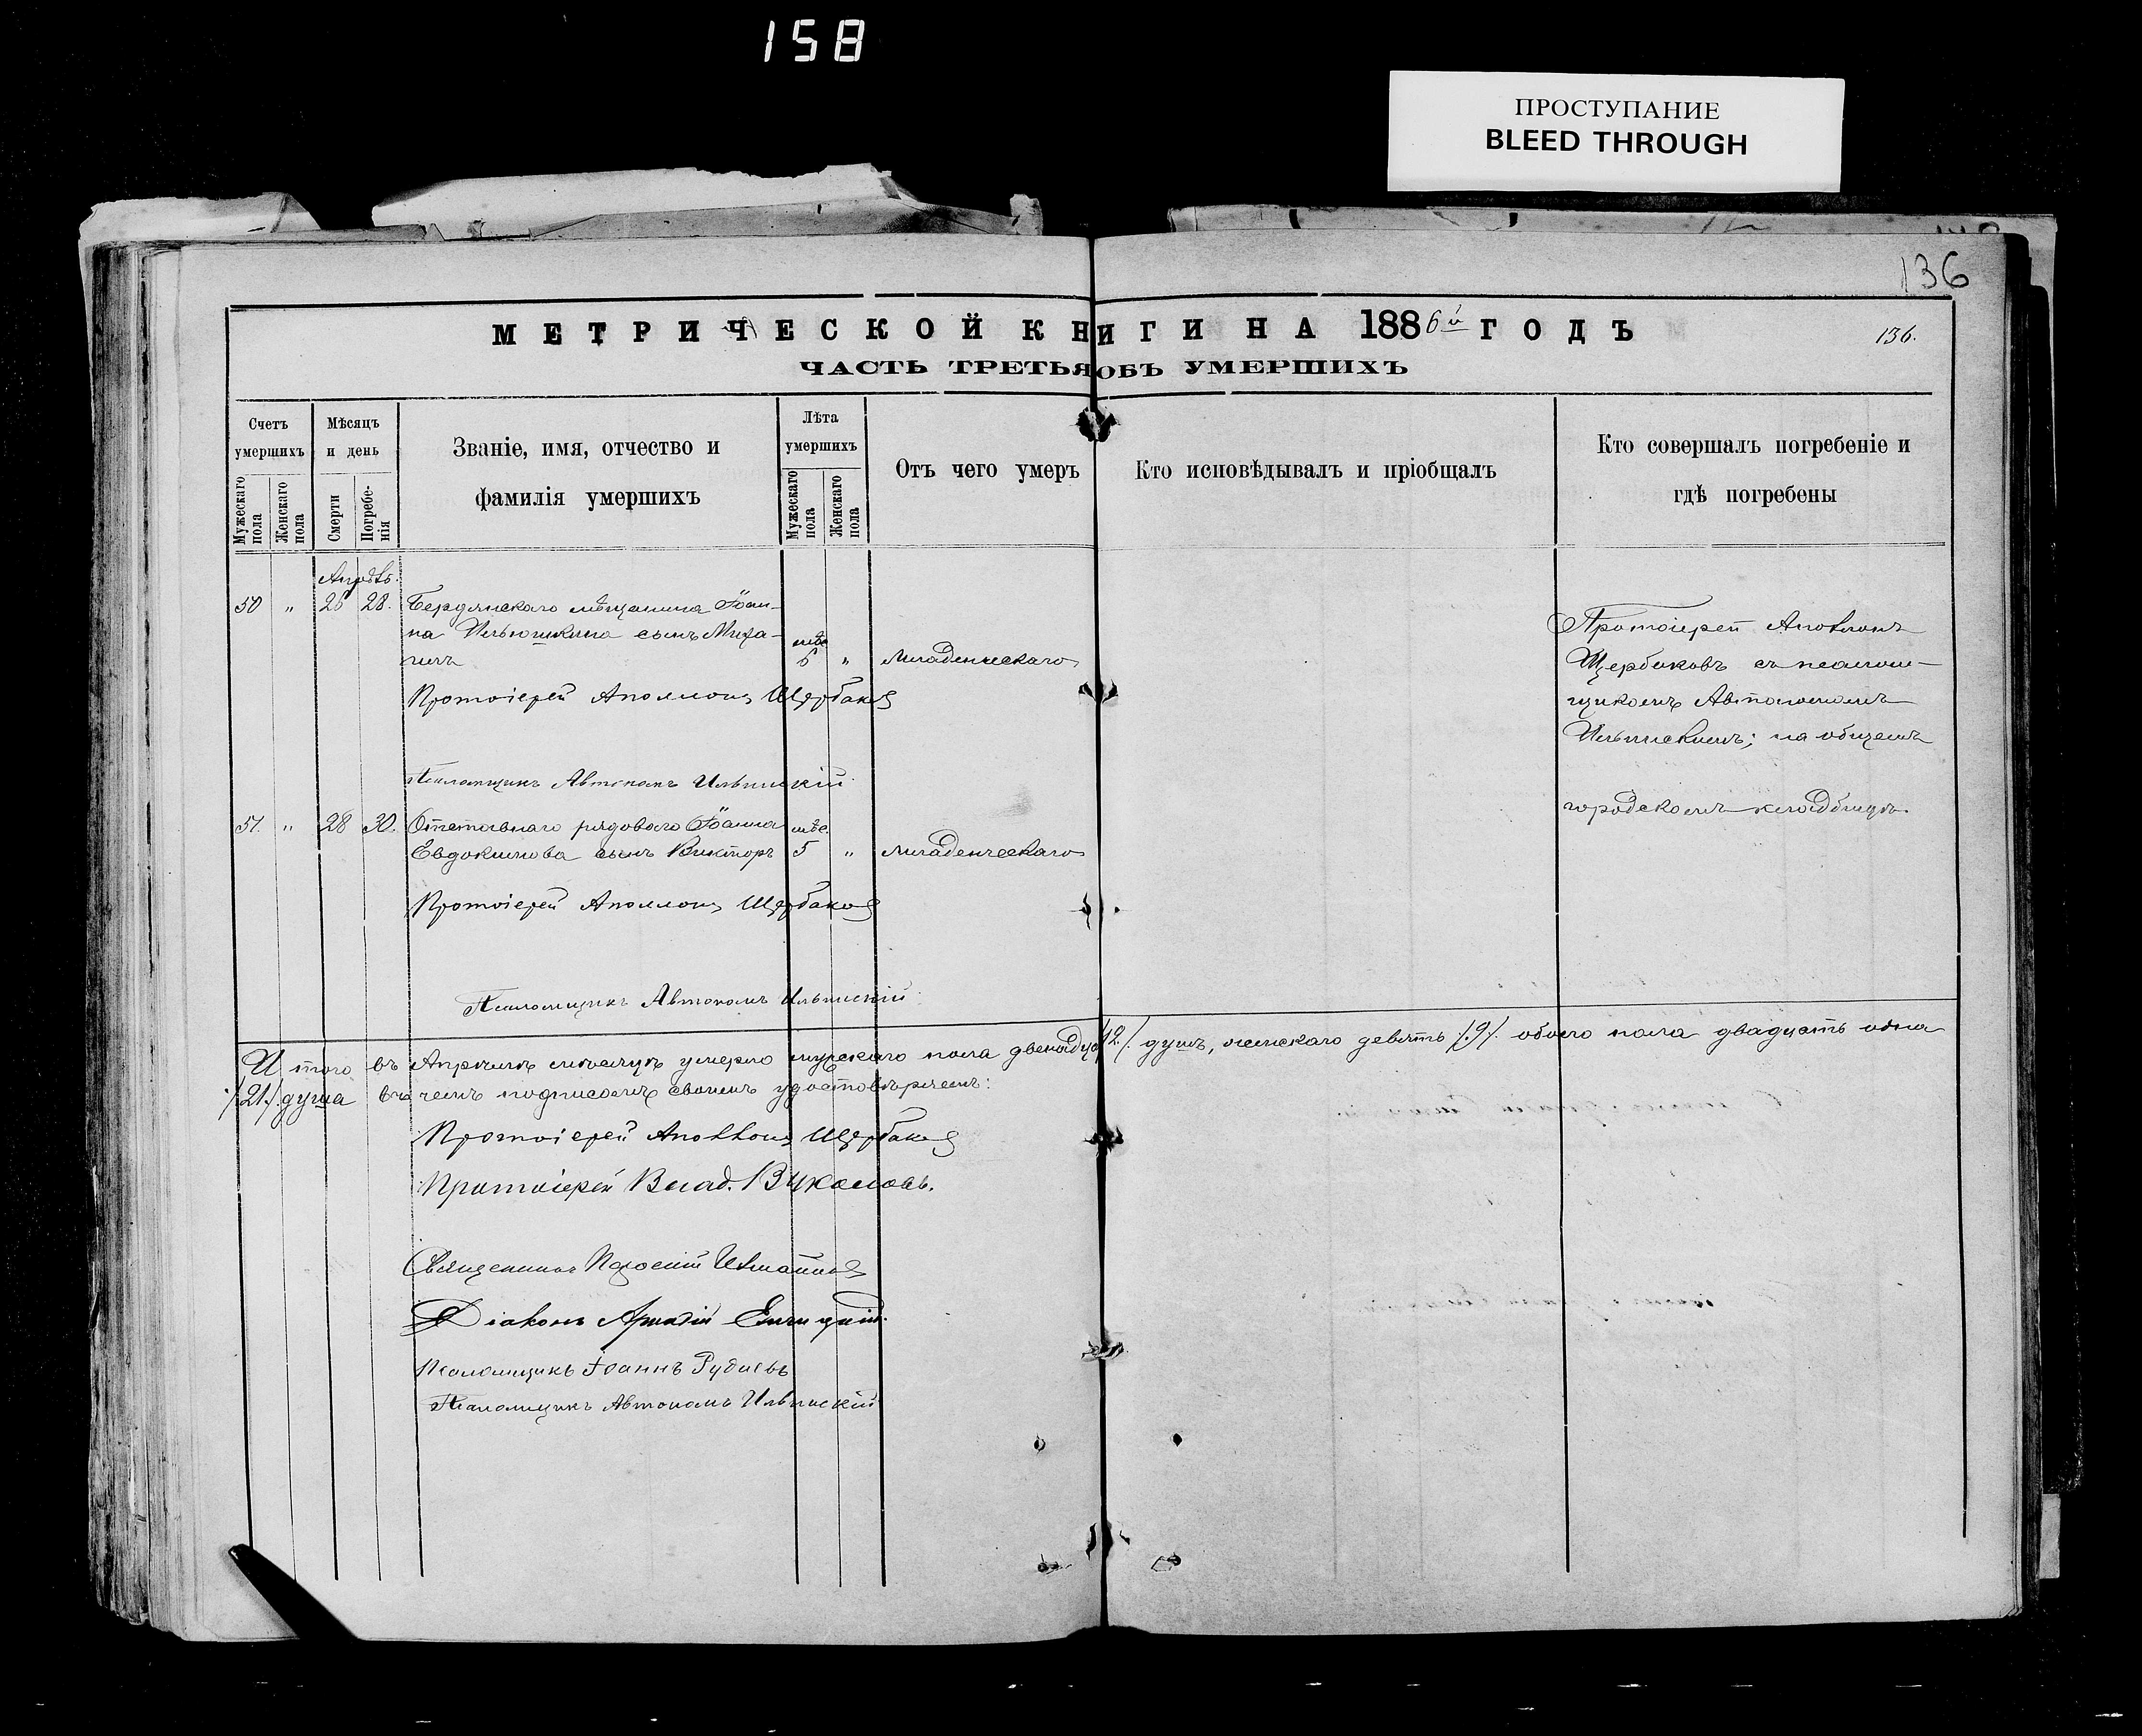 158
ПРОСТУПАНИЕ
BLEED THROUGH
136
МЕТРИЧЕСКОЙ КНИГИ НА 1886й ГОДЪ
136.
ЧАСТЬ ТРЕТЬЯ ОБЪ УМЕРШИХЪ
Счетъ умершихъ
Мужескаго пола
Женскаго пола
Мѣсяцъ и день
Смерти
Погребе-нія
Званіе, имя, отчество и
фамилія умершихъ
Лѣта умершихъ
Мужескаго пола
Женскаго пола
Отъ чего умеръ
Кто исповѣдывалъ и пріобщалъ
Кто совершалъ погребеніе и
гдѣ погребены
Апрѣль.
50 " 26 28. Бердянскаго мѣщанина Іоан-
на Ильюшкина сынъ Миха-
илъ
мѣс. 6 " Младенческаго
Протоіерей Аполлонъ Щербаковъ
Псаломщикъ Автономъ Ильинскій
Протоіерей Аполлонъ
Щербаковъ съ псаломщикомъ Автономомъ
Ильинскимъ; на общемъ
городскомъ кладбищѣ.
51. " 28 30. Отставнаго рядоваго Іоанна
Евдокимова сынъ Викторъ
мѣс. 5 " Младенческаго
Протоіерей Аполлонъ Щербаковъ
Псаломщикъ Автономъ Ильинскій
Итого въ Апрѣлѣ мѣсяцѣ умерло мужскаго пола двенадца /12/. душъ, женскаго девять /.9/. обоего пола двадцать одна
/.21./ душа въ чемъ подписомъ своимъ удостовѣряемъ:
Протоіерей Аполлонъ Щербаковъ
Протоіерей Влад. Вуколовъ.
Священникъ
Діаконъ
Псаломщикъ Іоаннъ
Псаломщикъ Автономъ Ильинскій